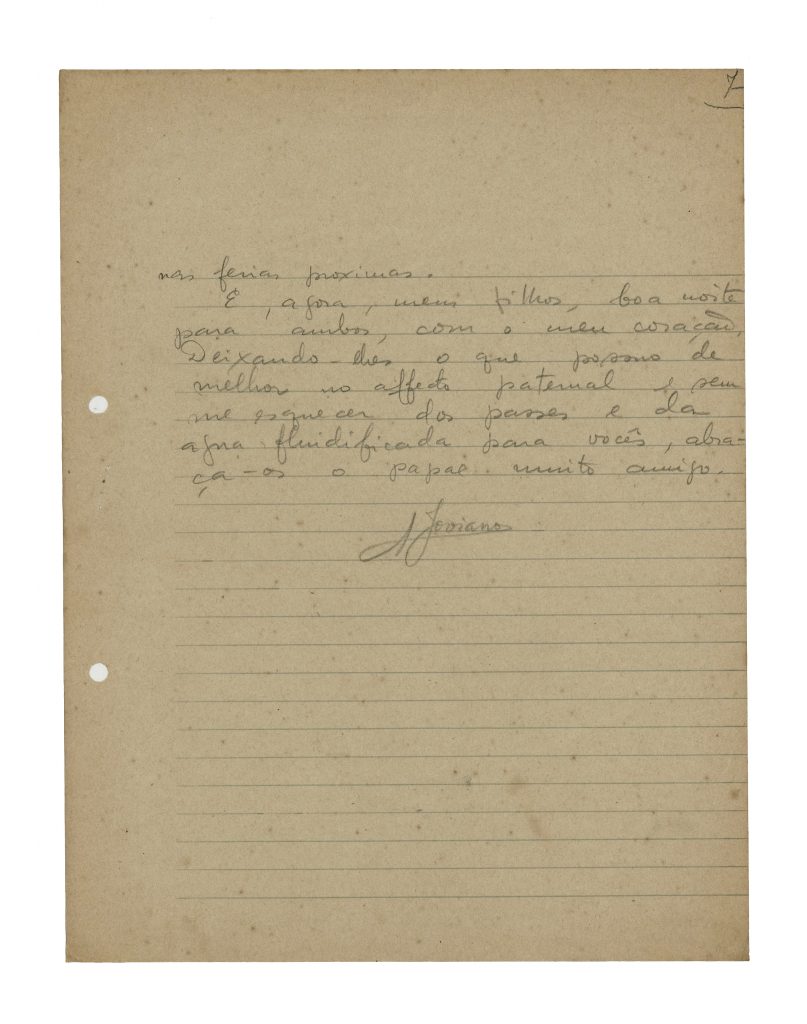 7-
nas ferias proximas.
E, agora, meus filhos, boa noite
para ambos, com o meu coração.
Deixando-lhes o que possuo de
melhor no affecto paternal e sem
me esquecer dos passes e da
agua fluidificada para vocês, abra-
ça-os o papae muito amigo.
A Joviano